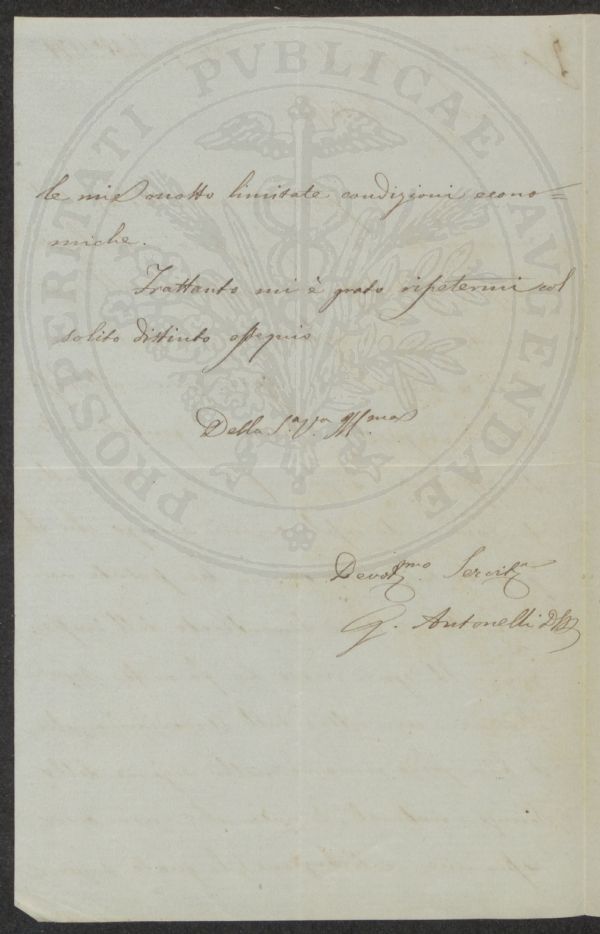 PROSPERITATI PVBLICAE AVGENDAE
le mie molto limitate condizioni econo=
miche.
Trattanto mi è grato ripetermi col
solito distinto ossequio
Della S.a V.a Ill.ma
Devot.mo Servit.r
G. Antonelli